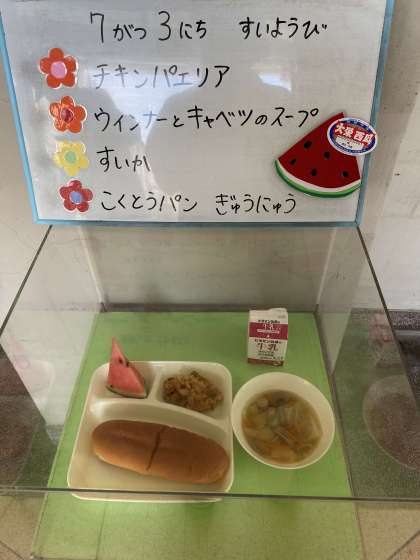 7がつ 3にち すいようび
チキンパエリア
ウィンナーとキャベツのスープ
すいか
こくとうパン ぎゅうにゅう
大栄西瓜
牛乳
牛乳